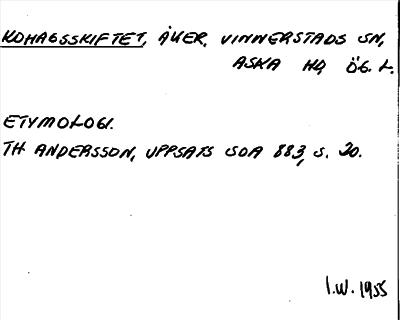 KOHAGSSKIFTET, ÅKER, VINNERSTADS SN,
ASKA HD, ÖG. L.
ETYMOLOGI.
TH ANDERSSON, UPPSATS SOA 883, S. 20.
I.W. 1955